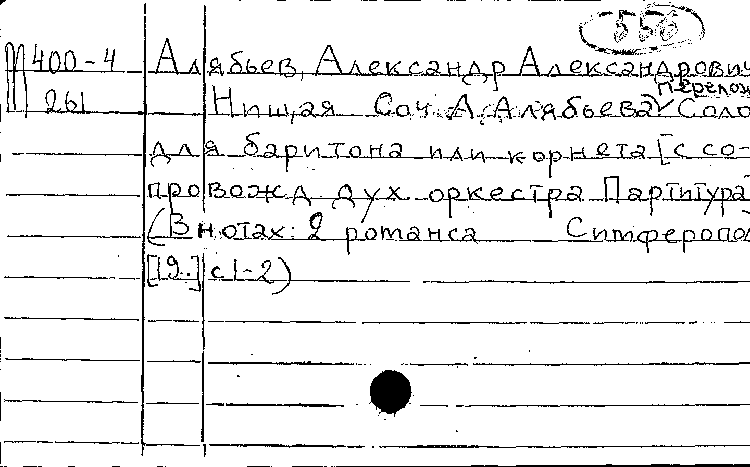 556
М 400-4 Алябьев, Александр Александрович
261 Нищая Соч. А. Алябьева перелож Соло
для баритона или корнета [с со-
провожд дух оркестра Партитура]
(В нотах: 2 романса Симферопол
[19.] с 1-2)